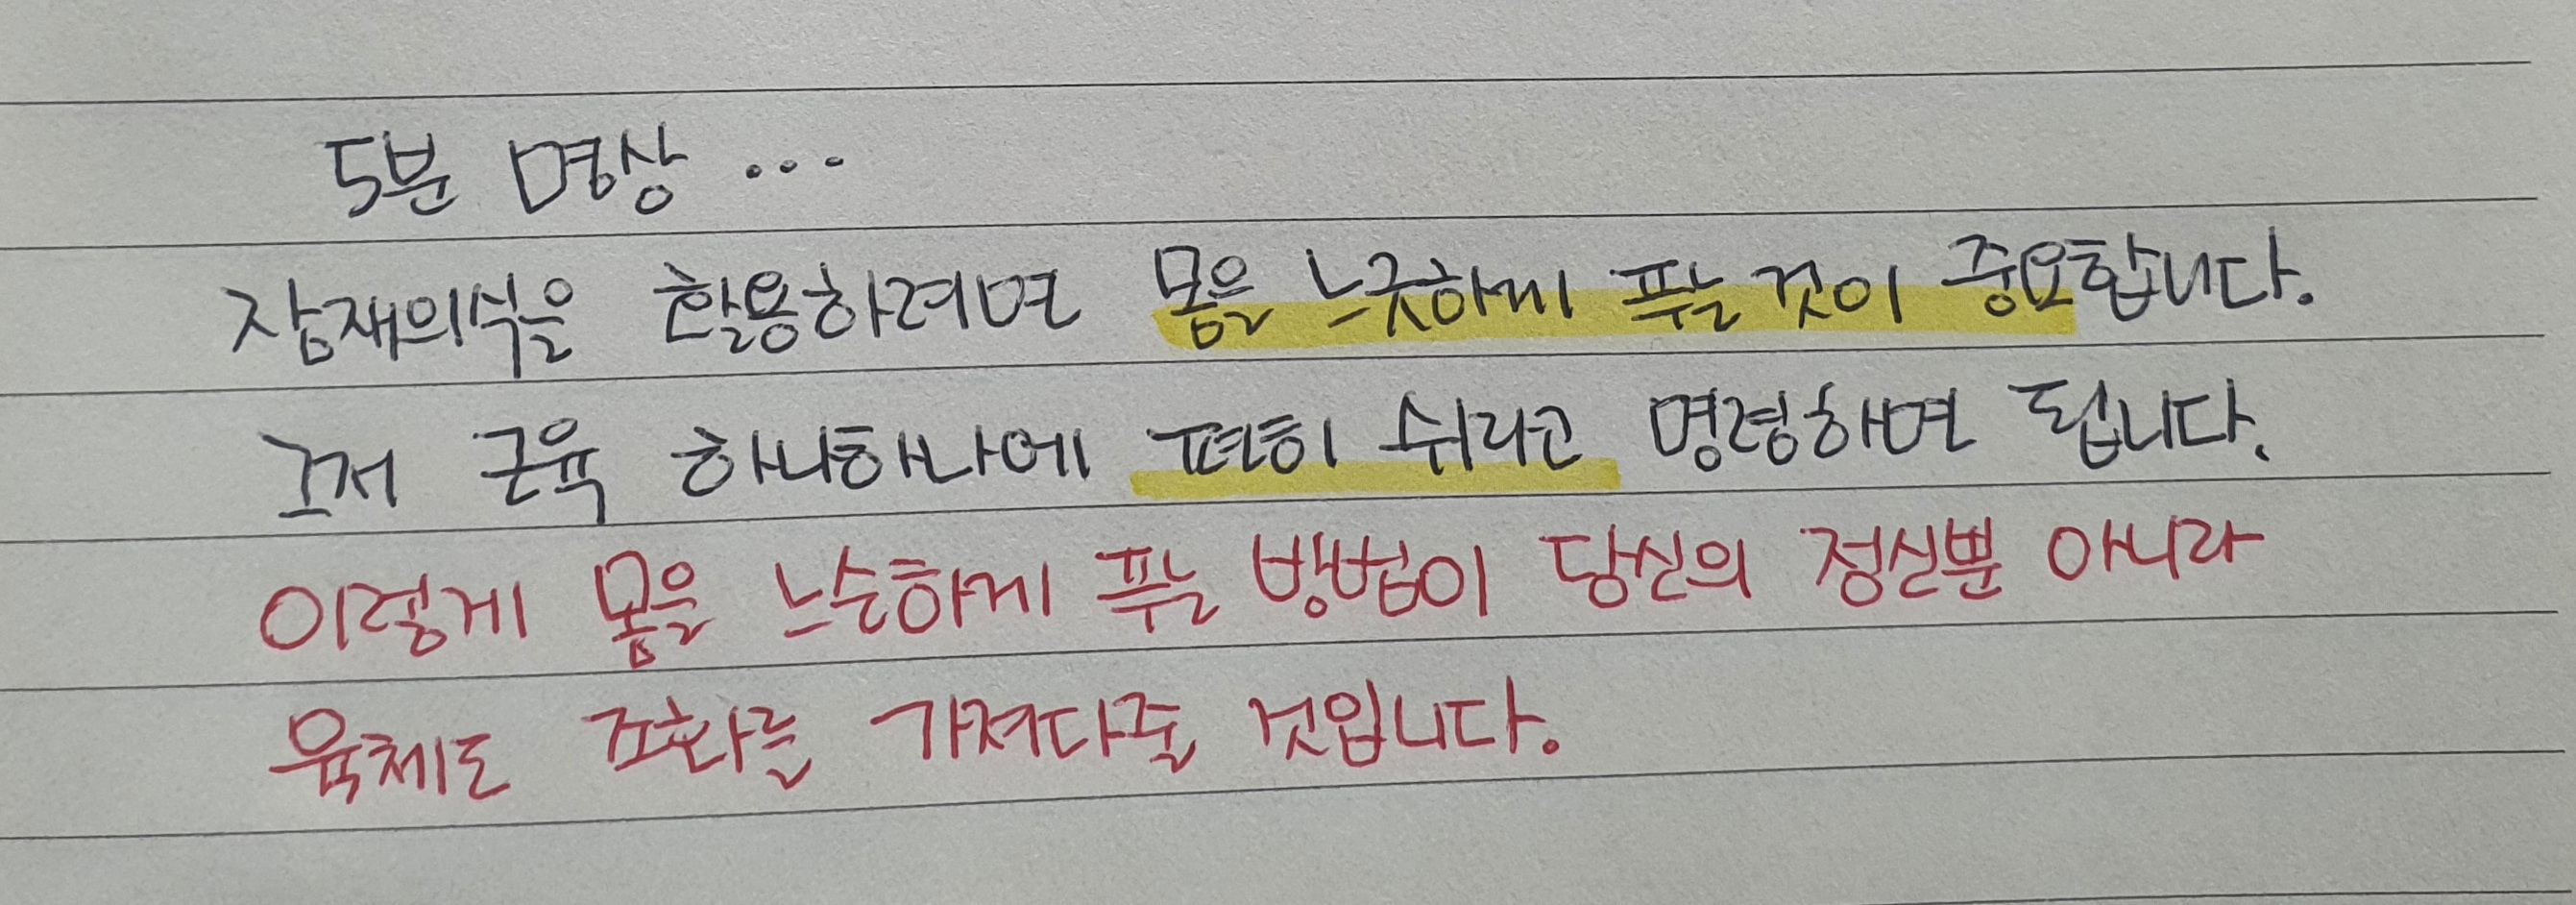 5분 명상 ...
잠재의식을 활용하려면 몸을 느긋하게 푸는 것이 중요합니다.
그저 근육 하나하나에 편히 쉬라고 명령하면 됩니다.
이렇게 몸을 느슨하게 푸는 방법이 당신의 정신뿐 아니라
육체도 조화를 가져다줄 것입니다.